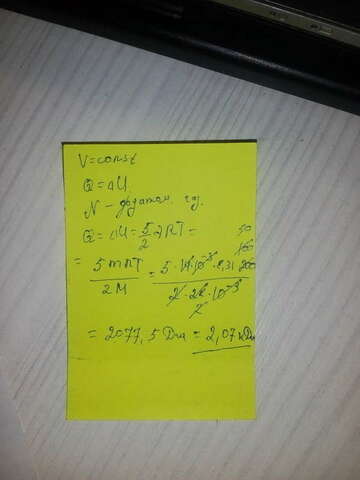 V=const
Q=ΔU.
N - двухатом. газ.
Q=ΔU=5/2 νRT=
= 5mRT/2M = 5·14·10⁻³·8,31·200/2·28·10⁻³
50
100
2
= 2077,5 Дж = 2,07 кДж